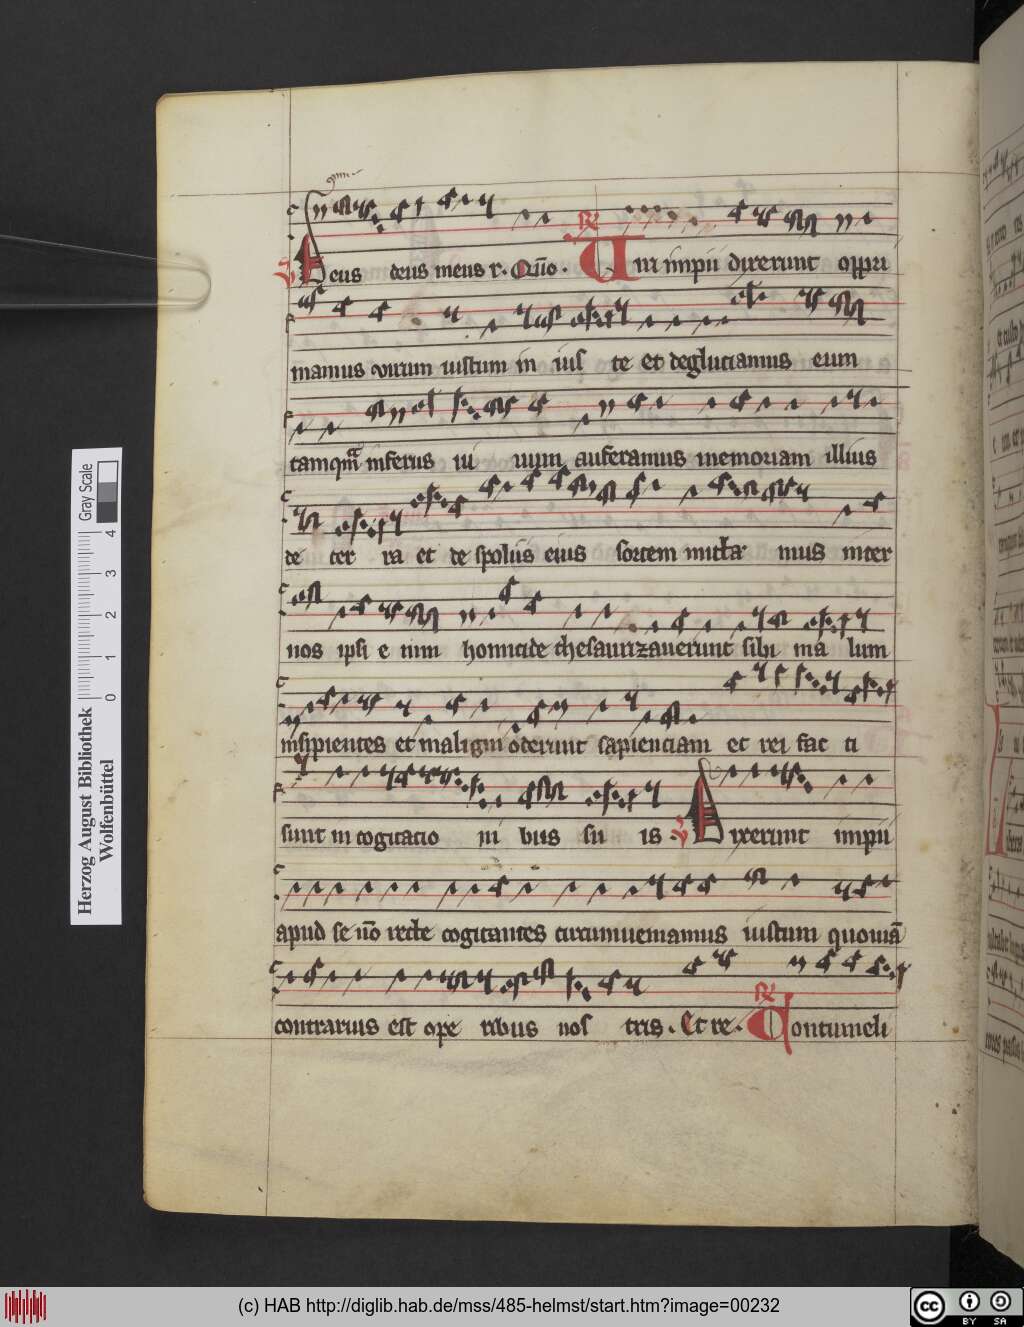 Deus deus meus r. Qm̅o. R Uiri impii dixerunt oppri
mamus virum iustum in ius te et deglutiamus eum
tamqm̅ inferus ui uum auferamus memoriam illius
de ter ra et de spoliis eius sortem mitta mus inter
nos ipsi e nim homicide thesaurizauerunt sibi ma lum
insipientes et maligni oderunt sapienciam et rei fac ti
sunt in cogitatio ni bus su is V Dixerunt impii
apud se no̅ recte cogitantes circumueniamus iustum quonia̅
contrarius est ope ribus nos tris. Et re. R Contumeli
Herzog August Bibliothek
Wolfenbüttel
0 1 2 3 4
Gray Scale
(c) HAB http://diglib.hab.de/mss/485-helmst/start.htm?image=00232
cc BY SA